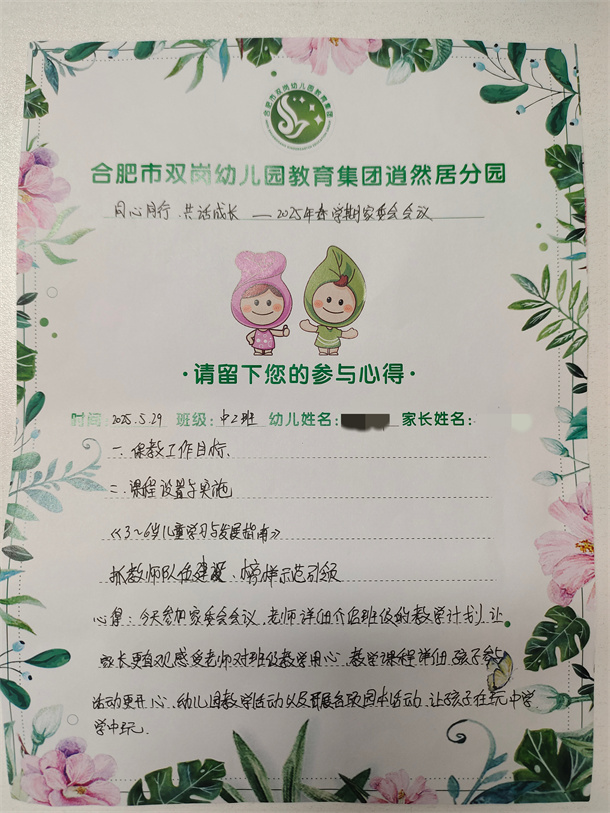 合肥市双岗幼儿园教育集团
合肥市双岗幼儿园教育集团逍然居分园
同心同行 共话成长 — 2025年春学期家委会会议
·请留下您的参与心得·
时间: 2025.5.29 班级: 中2班 幼儿姓名: 家长姓名:
一. 保教工作目标、
二. 课程设置与实施
《3~6岁儿童学习与发展指南》
抓教师队伍建设、榜样示范引领
心得: 今天参加家委会会议, 老师详细介绍班级的教学计划, 让
家长更直观感受老师对班级教学用心. 教学课程详细 孩子参与
活动更开心. 幼儿园教学活动以及开展各项园本活动. 让孩子在玩中学
学中玩.